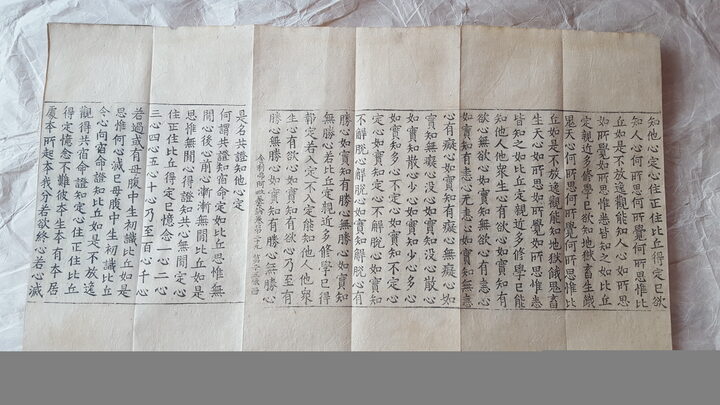 知他心定心住正住比丘得定已欲
知人心何所思何所覺何所思惟比
丘如是不放逸觀能知人心如所思
如所覺如所思惟悉皆知之如比丘
定親近多修學已欲知地獄畜生餓
鬼天心何所思何所覺何所思惟比
丘如是不放逸觀能知地獄餓鬼畜
生天心如所思如所覺如所思惟悉
皆知之如比丘定親近多修學已能
知他人他眾生心有欲心如實知有
欲心無欲心如實知無欲心有恚心
如實知有恚心无恚心如實知無恚
心有癡心如實知有癡心無癡心如
實知無癡心没心如實知没心散心
如實知散心少心如實知少心多心
如實知多心不定心如實知不定心
定心如實知定心不解脫心如實知
不解脫心解脫心如實知解脫心有
勝心如實知有勝心無勝心如實知
無勝心若比丘定親近多修學已得
報定若入定不入定能知他人他眾
生心有欲心如實知有欲心乃至有
勝心無勝心如實知有勝心無勝心
舍利弗阿毗曇論
是名共證知他心定
何謂共證知宿命定如比丘思惟無
間心後心前心漸漸無間比丘如是
思惟無間心得證知共無間定心
住正住比丘得定已憶念一心二心
三心四心五心十心乃至百心千心
若過或有母腹中生初識比丘如是
思惟何心滅已母腹中生初識比丘
令心向宿命證知比丘如是不放逸
觀得共宿命證知定心住正住比丘
得定憶念不難彼本生本有本居
處本所起本我分若欲終心若心滅